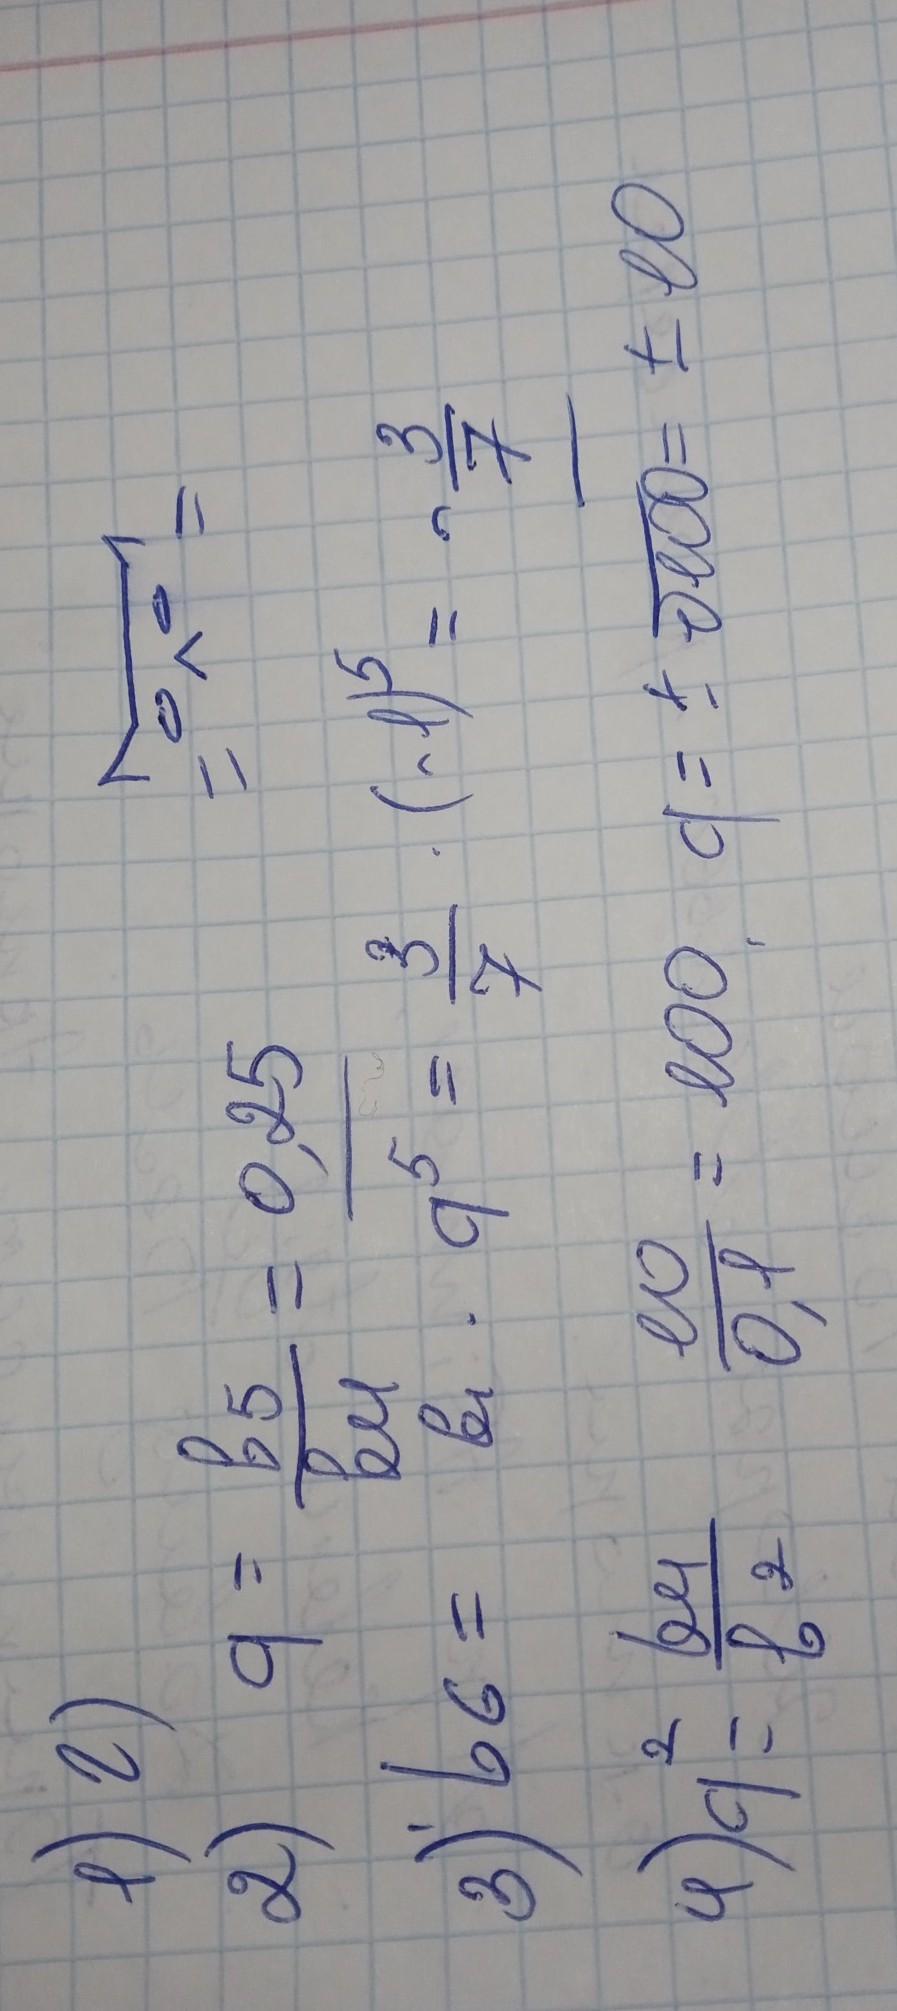 1) г)
2) q = b5/b4 = 0,25
3) b6 = b1 · q^5 = 3/7 · (-1)^5 = -3/7
4) q^2 = b4/b2 = 10/0,1 = 100, q = ± √100 = ± 10